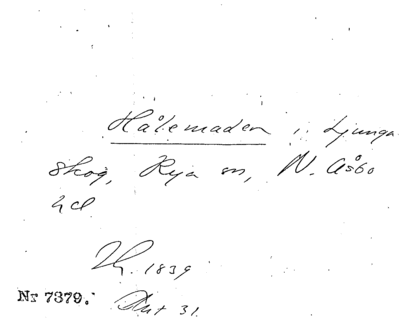 Hålemaden i Ljunga
skog, Rya sn, N. Åsbo
hd.
1839
Nr 7379.
Ant 31.